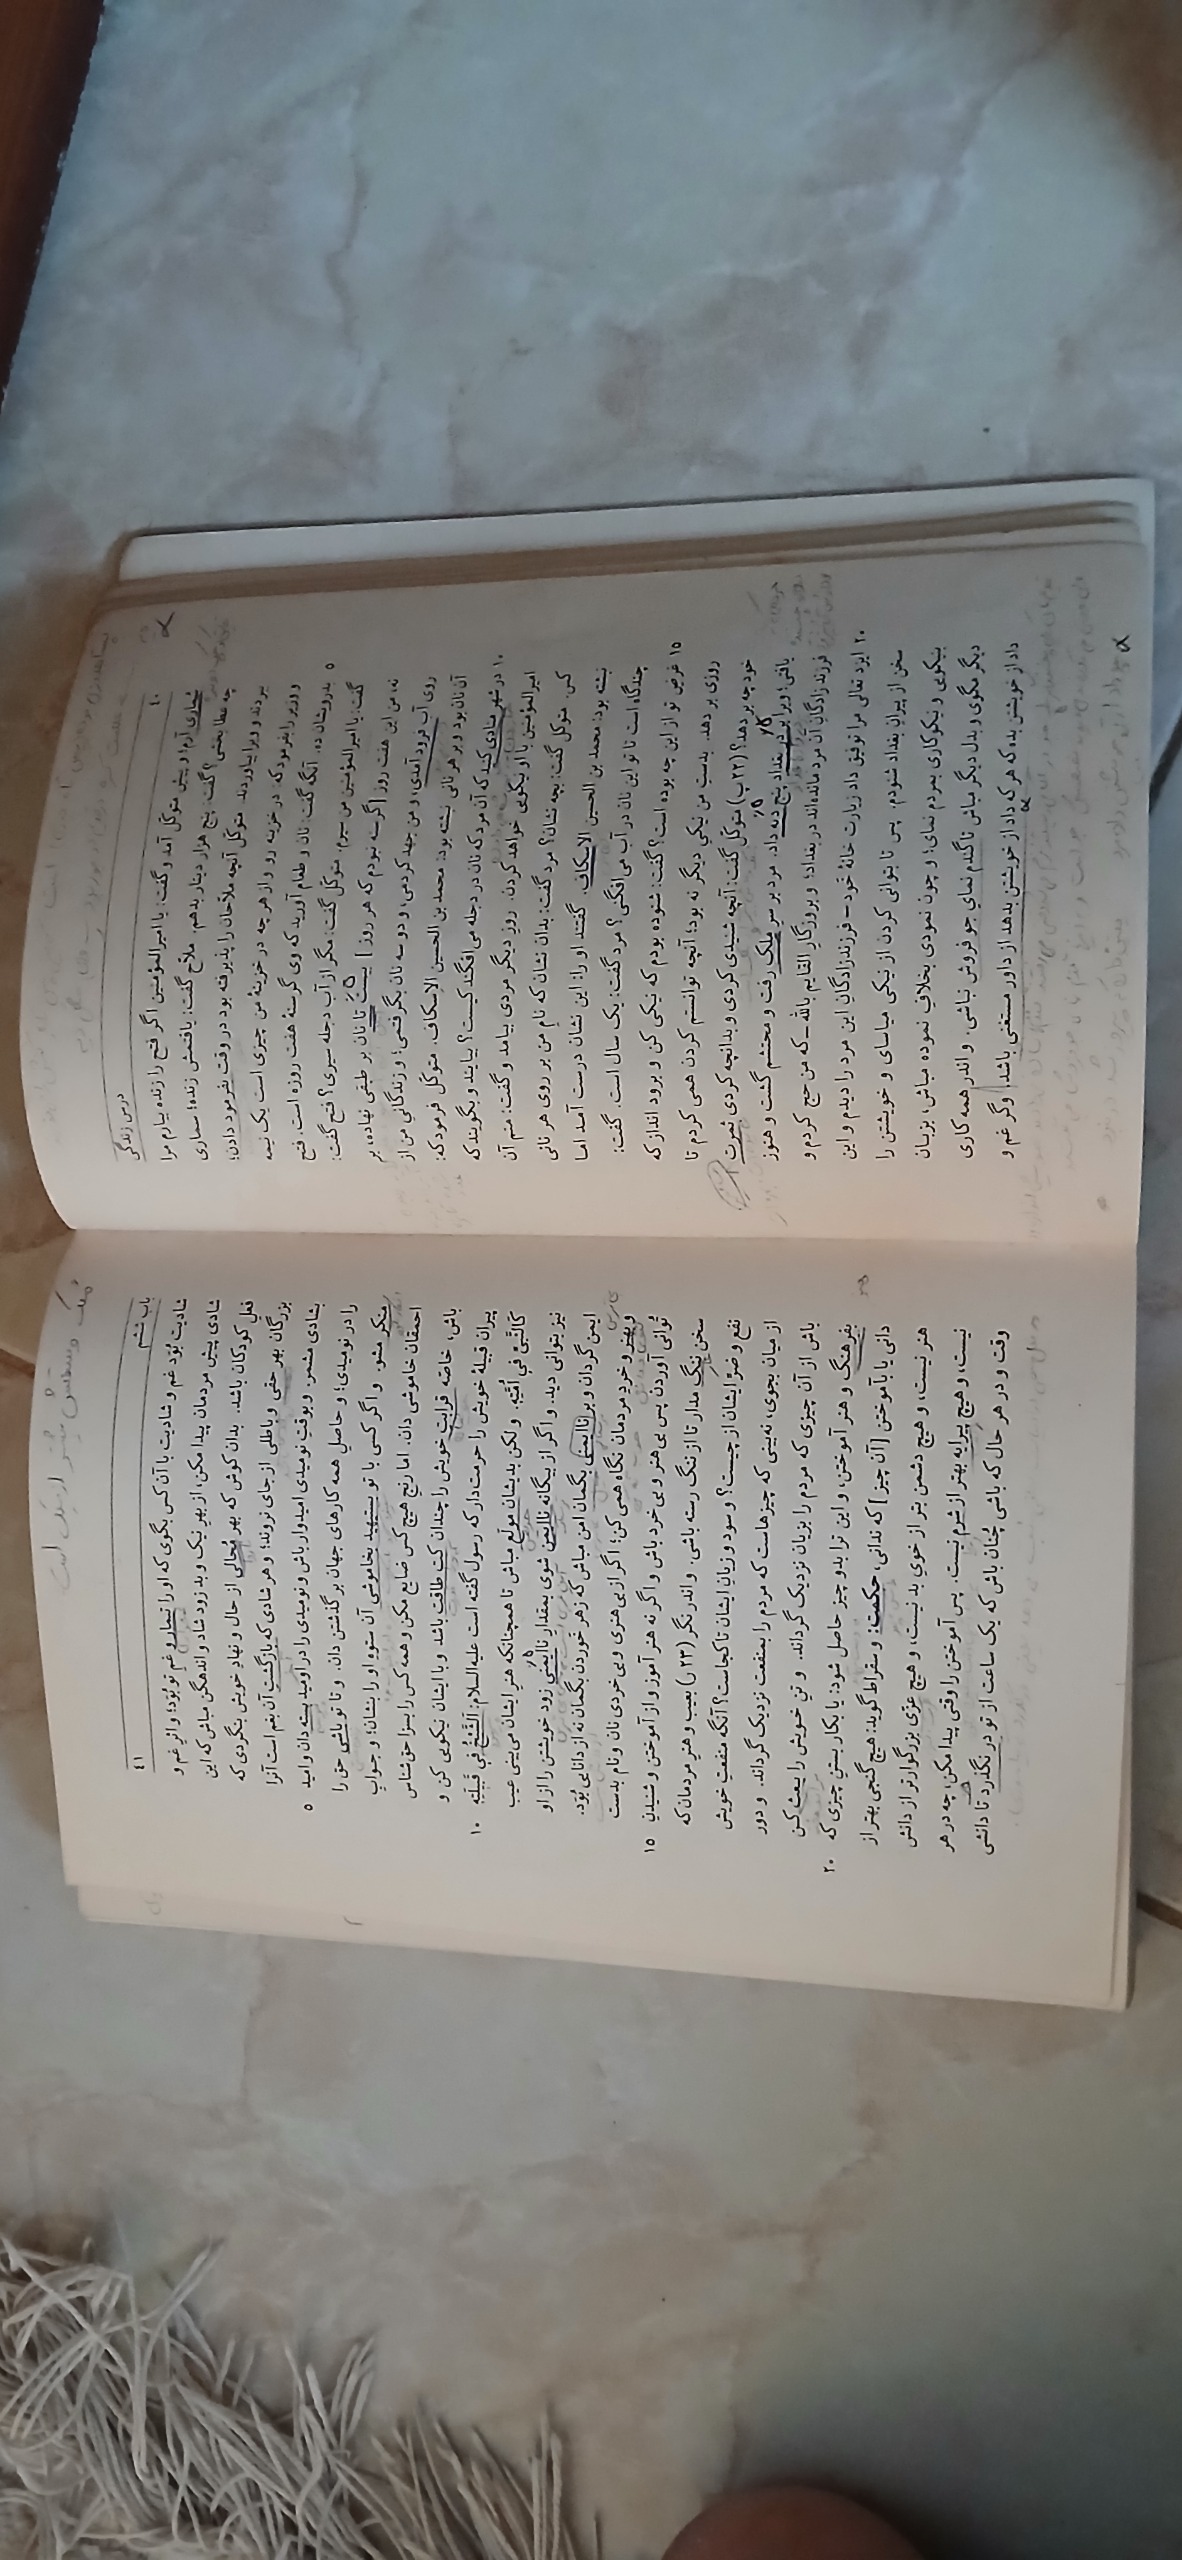 درس زندگی
٤٠
شماری آرم؛ و پیش متوکل آمد و گفت: یا امیرالمؤمنین اگر فتح را زنده بیارم مرا
چه عطا بخشی؟ گفت: پنج هزار دینار بدهم. ملاح گفت: یافتمش زنده؛ سماری
بردند و ویرا بیاوردند. متوکل آنچه ملاحان را پذیرفته بود در وقت بفرمود دادن؛
و وزیر را بفرمود که: در خزینه رو و از هر چه در خزینهٔ من چیزی است یک نیمه
بدرویشان ده. آنگه گفت: نان و طعام آورید که وی گرسنهٔ هفت روزه است. فتح
٥
گفت: یا امیرالمؤمنین من سیرم. متوکل گفت: مگر از آب دجله سیری؟ فتح گفت:
نه، من این هفت روز گرسنه نبودم که هر روز [بیست تا نان بر طبقی نهاده، بر
روی آب فرود آمدی، و من جهد کردمی، و دو سه نان بگرفتمی؛ و زندگانی من از
آن نان بود و بر هر نانی نبشته بود: محمد بن الحسین الاسکاف. متوکل فرمود که:
در شهر منادی کنید که آن مرد که نان در دجله می‌افگند کیست؟ بیایند و بگویند که
١٠
امیرالمؤمنین با او نیکویی خواهد کردن. روز دیگر مردی بیامد و گفت: منم آن
کس. متوکل گفت: بچه نشان؟ مرد گفت: بدان نشان که نام من بر روی هر نانی
نبشته بود: محمد بن الحسین الاسکاف. گفتند او را: این نشان درست آمد اما
چندگاه است تا تو این نان در آب می‌افگنی؟ مرد گفت: یک سال است. گفت:
غرض تو از این چه بوده است؟ گفت: شنوده بودم که نیکی کن و برود انداز که
١٥
روزی بر دهد. بدست من نیکی دیگر نه بود؛ آنچه توانستم کردن همی کردم تا
خود چه بر دهد؟ (٢٢پ) متوکل گفت: آنچه شنیدی کردی و بدانچه کردی ثمرت
یافتی؛ و برا بر در بغداد پنج دیه داد. مرد بر سر ملک رفت و محتشم گشت و هنوز
فرزندزادگان آن مرد مانده‌اند در بغداد؛ و بروزگار القایم بالله ـ که من حج کردم و
ایزد تعالی مرا توفیق داد زیارت خانهٔ خود ـ فرزندزادگان این مرد را دیدم و این
٢٠
سخن از پیران بغداد شنودم. پس تا بتوانی کردن از نیکی میاسای و خویشتن را
بنیکویی و نیکوکاری بمردم نمای؛ و چون نمودی بخلاف نموده مباش، بزبان
دیگر مگوی و بدل دیگر مباش تا گندم نمای جو فروش نباشی. و اندر همه کاری
داد از خویشتن بده که هر که داد از خویشتن بدهد از داور مستغنی باشد. و گر غم و
باب ششم
٤١
شادیت بُوَد غم و شادیت با آن کس بگوی که او را تیمار و غم تو بُوَد؛ و اثر غم و
شادی پیش مردمان پیدا مکن، از بهر نیک و بد زود شاد و اندهگن مباش که این
فعل کودکان باشد. بدان کوش که بهر مُحالی از حال و نهاد خویش بنگردی که
بزرگان بهر حقی و باطلی از جای نروند؛ و هر شادی که بازگشت آن بغم است آنرا
بشادی مشمر. و بوقت نومیدی امیدوار باش و نومیدی را در اومید بسته دان و امید
٥
را در نومیدی؛ و حاصل همه کارهای جهان بر گذشتن دان. و تا تو باشی حق را
منکر مشو. و اگر کسی با تو بستیهد بخاموشی آن ستوه او را بنشان؛ و جواب
احمقان خاموشی دان. اما رنج هیچ کس ضایع مکن و همه کس را بسزا حق شناس
باش، خاصه قرابت خویش را چندان کت طاقت باشد و با ایشان نیکویی کن و
پیران قبیلهٔ خویش را حرمت دار که رسول گفته است علیه السلام: اَلشَّیْخُ فی قَبیلَتِهِ
١٠
کَالنَّبیِّ فی اُمَّتِهِ. ولکن بدیشان مولَع مباش تا همچنانکه هنر ایشان می‌بینی عیب
نیز بتوانی دید. و اگر از بیگانه نایمن شوی بمقدار نایمنی زود خویشتن را از او
ایمن گردان و بر ناایمنی بگمان امن مباش که زهر خوردن بگمان نه از دانایی بُوَد.
و بهنر و خرد مردمان نگاه همی کن؛ اگر از بی‌هنری و بی‌خردی نان و نام بدست
توانی آوردن پس بی‌هنر و بی‌خرد باش و اگر نه هنر آموز و از آموختن و شنیدن
١٥
سخن ننگ مدار تا از ننگ رسته باشی. و اندر نگر (٢٣ر) بعیب و هنر مردمان که
نفع و ضرّ ایشان از چیست؟ و سود و زیان ایشان تا کجاست؟ آنگه منفعت خویش
از میان بجوی، نه‌بینی که چیزهاست که مردم را بمنفعت نزدیک گرداند. و دور
باش از آن چیزی که مردم را بزیان نزدیک گرداند. و تن خویش را بعث کن
بفرهنگ و هنر آموختن، و این ترا بدو چیز حاصل شود: یا بکار بستن چیزی که
٢٠
دانی یا بآموختن [آن چیز] که ندانی، حکمت: و سقراط گوید: هیچ گنجی بهتر از
هنر نیست، و هیچ دشمن بتر از خوی بد نیست، و هیچ عزی بزرگوارتر از دانش
نیست، و هیچ پیرایه بهتر از شرم نیست. پس آموختن را وقتی پیدا مکن، چه در هر
وقت و در هر حال که باشی چنان باش که یک ساعت از تو در نگذرد تا دانشی